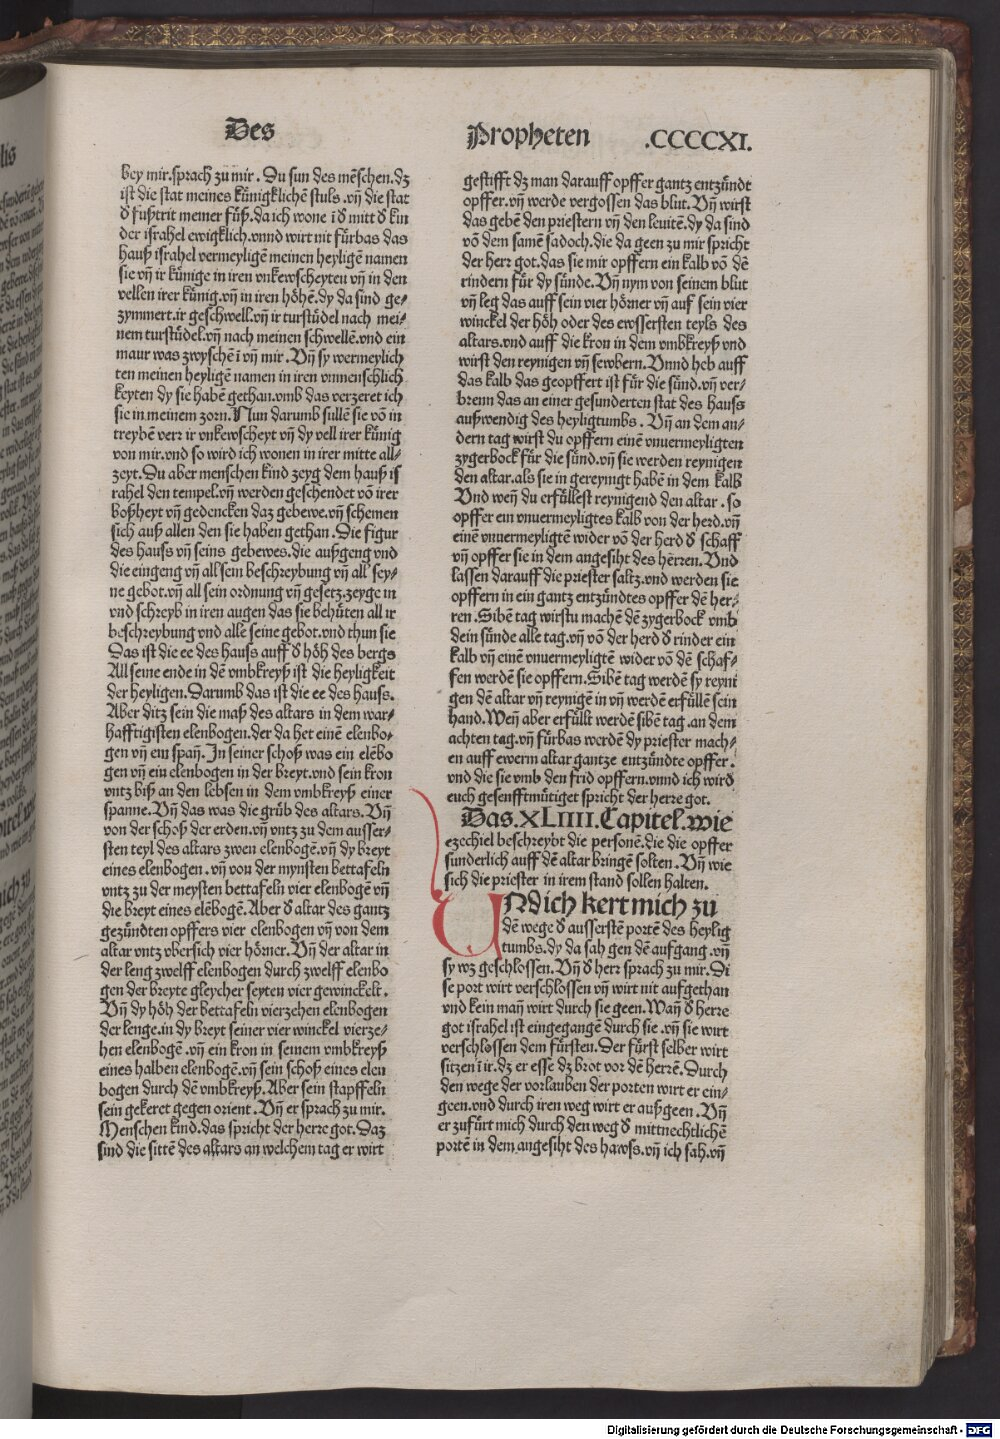 Des
Propheten .CCCCXI.
bey mir.sprach zu mir. Du sun des mēschen.dz
ist die stat meines künigklichē stuls.vn̄ die stat
d̕ fußtrit meiner füß.da ich wone ī d̕ mitt d̕ kin
der israhel ewigklich.vnnd wirt nit fürbas das
hauß israhel vermeyligē meinen heyligē namen
sie vn̄ ir künige in iren vnkewscheyten vn̄ in den
vellen irer künig.vn̄ in iren höhē.dy da sind ge⸗
zymmert.ir geschwell.vn̄ ir turstüdel nach mei⸗
nem turstüdel.vn̄ nach meinen schwellē.vnd ein
maur was zwyschē ī vn̄ mir. Vn̄ sy vermeylich
ten meinen heyligē namen in iren vnmenschlich
keyten dy sie habē gethan.vmb das verzeret ich
sie in meinem zorn.Nun darumb süllē sie vō in
treybē verr ir vnkewscheyt vn̄ dy vell irer künig
von mir.vnd so wird ich wonen in irer mitte all⸗
zeyt.Du aber menschen kind zeyg dem hauß is
rahel den tempel.vn̄ werden geschendet vō irer
boßheyt vn̄ gedencken daz gebewe.vn̄ schemen
sich auß allen den sie haben gethan. Die figur
des hauss vn̄ seins gebewes.die außgeng vnd
die eingeng vn̄ all sein beschreybung vn̄ all sey⸗
ne gebot.vn̄ all sein ordnung vn̄ gesetz.zeyge in
vnd schreyb in iren augen das sie behüten all ir
beschreybung vnd alle seine gebot.vnd thun sie
Das ist die ee des hauss auff d̕ höh des bergs
All seine ende in dē vmbkreyß ist die heyligkeit
der heyligen.Darumb das ist die ee des hauss.
Aber ditz sein die maß des altars in dem war⸗
hafftigisten elenbogen.der da het einē elenbo⸗
gen vn̄ ein span̄. In seiner schoß was ein elēbo
gen vn̄ ein elenbogen in der breyt.vnd sein kron
vntz biß an den lebsen in dem vmbkreyß einer
spanne. Vn̄ das was die grüb des altars. Vn̄
von der schoß der erden.vn̄ vntz zu dem ausser⸗
sten teyl des altars zwen elenbogē.vn̄ dy breyt
eines elenbogen. vn̄ von der mynsten bettafeln
vntz zu der meysten bettafeln vier elenbogē vn̄
die breyt eines elēbogē.Aber d̕ altar des gantz
gezündten opffers vier elenbogen vn̄ von dem
altar vntz vbersich vier hörner. Vn̄ der altar in
der leng zwelff elenbogen durch zwelff elenbo
gen der breyte gleycher seyten vier gewinckelt.
Vn̄ dy höh der bettafeln vierzehen elenbogen
der lenge.in dy breyt seiner vier winckel vierze⸗
hen elenbogē .vn̄ ein kron in seinem vmbkreyß
eines halben elenbogē.vn̄ sein schoß eines elen
bogen durch dē vmbkreyß.Aber sein stapffeln
sein gekeret gegen orient. Vn̄ er sprach zu mir.
Menschen kind.das spricht der herre got. Daz
sind die sittē des altars an welchem tag er wirt
gestifft dz man darauff opffer gantz entzündt
opffer.vn̄ werde vergossen das blut. Vn̄ wirst
das gebē den priestern vn̄ den leuitē.dy da sind
vō dem samē sadoch.die da geen zu mir spricht
der herr got.das sie mir opffern ein kalb vō dē
rindern für dy sünde. Vn̄ nym von seinem blut
vn̄ leg das auff sein vier hörner vn̄ auf sein vier
winckel der höh oder des ewssersten teyls des
altars.vnd auff die kron in dem vmbkreyß vnd
wirst den reynigen vn̄ sewbern. Vnnd heb auff
das kalb das geopffert ist für die sünd.vn̄ ver⸗
brenn das an einer gesunderten stat des hauss
außwendig des heyligtumbs. Vn̄ an dem an⸗
dern tag wirst du opffern einē vnuermeyligten
zygerbock für die sünd.vn̄ sie werden reynigen
den altar.als sie in gereynigt habē in dem kalb
Vnd wen̄ du erfüllest reynigend den altar. so
opffer ein vnuermeyligtes kalb von der herd.vn̄
einē vnuermeyligtē wider vō der herd d̕ schaff
vn̄ opffer sie in dem angesiht des herren. Vnd
lassen darauff die priester saltz.vnd werden sie
opffern in ein gantz entzündtes opffer dē her⸗
ren.Sibē tag wirstu machē dē zygerbock vmb
dein sünde alle tag.vn̄ vō der herd d̕ rinder ein
kalb vn̄ einē vnuermeyligtē wider vō dē schaf⸗
fen werdē sie opffern.Sibē tag werdē sy reyni
gen dē altar vn̄ reynigē in vn̄ werdē erfüllē sein
hand.Wen̄ aber erfüllt werdē sibē tag .an dem
achten tag.vn̄ fürbas werdē dy priester mach⸗
en auff ewerm altar gantze entzündte opffer.
vnd die sie vmb den frid opffern.vnnd ich wird
euch gesenfftmütiget spricht der herre got.
Das.XLIIII.Capitel.wie
ezechiel beschreybt die personē.die die opffer
sunderlich auff dē altar bringē solten. Vn̄ wie
sich die priester in irem stand sollen halten.
UNd ich kert mich zu
dē wege d̕ ausserstē portē des heylig
tumbs.dy da sah gen dē aufgang .vn̄
sy wz geschlossen. Vn̄ d̕ herr sprach zu mir.Di
se port wirt verschlossen vn̄ wirt nit aufgethan
vnd kein man̄ wirt durch sie geen.Wan̄ d̕ herre
got israhel ist eingegangē durch sie.vn̄ sie wirt
verschlossen dem fürsten.Der fürst selber wirt
sitzen ī ir.dz er esse dz brot vor dē herrē.Durch
den wege der vorlauben der porten wirt er ein⸗
geen.vnd durch iren weg wirt er außgeen. Vn̄
er zufürt mich durch den weg d̕ mittnechtlichē
portē in dem angesiht des hawss.vn̄ ich sah.vn̄
Digitalisierung gefördert durch die Deutsche Forschungsgemeinschaft - DFG